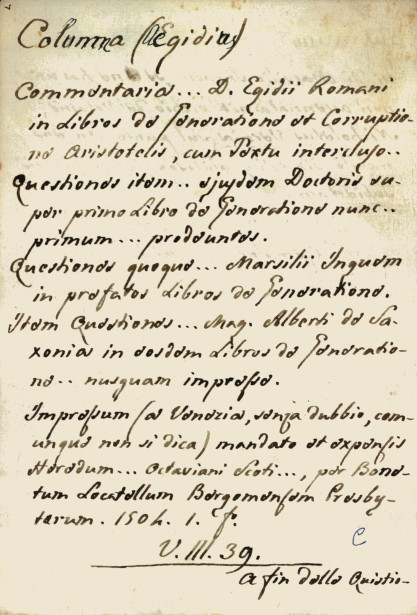 Columna (Ægidius)
Commentaria... D. Egidii Romani
in Libros de Generatione et Corruptio-
ne Aristotelis, cum Textu intercluso..
Questiones item.. ejusdem Doctoris su-
per primo Libro de Generatione nunc..
primum... prodeuntes.
Questiones quoque... Marsilii Inguem
in prefatos Libros de Generatione.
Item Questiones... Mag. Alberti de Sa-
xonia in eosdem Libros de Generatio-
ne.. nusquam impresse.
Impressum (a Venezia, senza dubbio, com-
unque non si dica) mandato et expensis
Heredum... Octaviani Scoti..., per Bone-
tum Locatellum Bergomensem Presby-
terum. 1504. 1. f.
C
V. III. 39.
a fin delle Quistio-